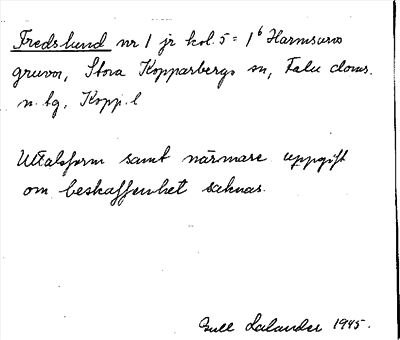 Fredslund nr 1 jr kol. 5 = 1⁶ Harmsarvs
gruvor, Stora Kopparbergs sn, Falu doms.
n. tg, Kopp. l
Uttalsform samt närmare uppgift
om beskaffenhet saknas.
Gull Lalander 1945.